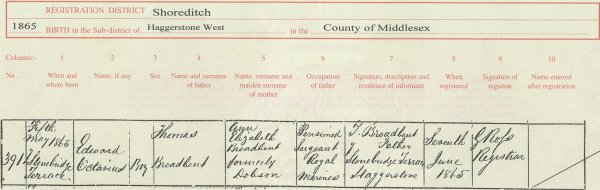 REGISTRATION DISTRICT Shoreditch
1865 BIRTH in the Sub-district of Haggerstone West in the County of Middlesex
Columns:- 1 2 3 4 5 6 7 8 9 10
No. When and where born Name, if any Sex Name and surname of father Name, surname and maiden surname of mother Occupation of father Signature, description and residence of informant When registered Signature of registrar Name entered after registration
391
Fifth
May 1865
Stonebridge
Terrace
Edward
Octavius
Boy
Thomas
Broadbent
Ann
Elizabeth
Broadbent
formerly
Dobson
Pensioned
Sergeant
Royal
Marines
T. Broadbent
Father
Stonebridge Terrace
Haggerstone
Seventh
June
1865
G Ross
Registrar